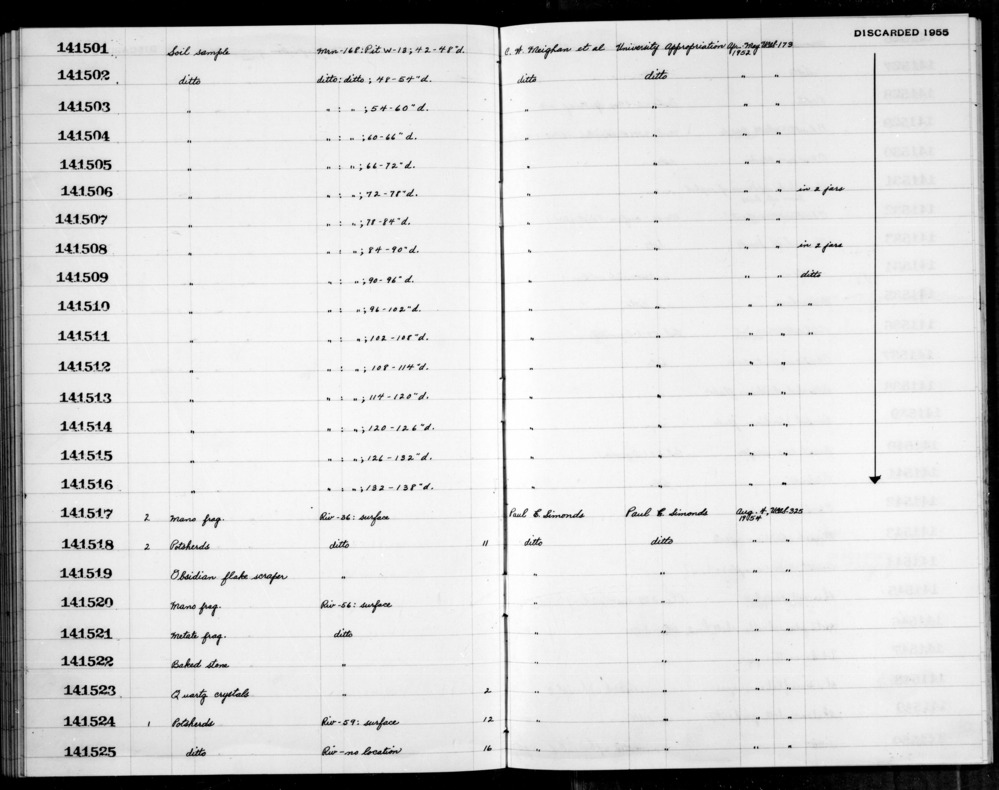 DISCARDED 1955
141501 Soil sample Mrn-168: Pit W-13; 42-48"d. C. W. Meighan et al University Appropriation Ap. May 1952 173
141502 ditto ditto: ditto; 48-54"d. ditto ditto " "
141503 " " : " ; 54-60"d. " " " "
141504 " " : " ; 60-66"d. " " " "
141505 " " : " ; 66-72"d. " " " "
141506 " " : " ; 72-78"d. " " " " in 2 jars
141507 " " : " ; 78-84"d. " " " "
141508 " " : " ; 84-90"d. " " " " in 2 jars
141509 " " : " ; 90-96"d. " " " " ditto
141510 " " : " ; 96-102"d. " " " " "
141511 " " : " ; 102-108"d. " " " " "
141512 " " : " ; 108-114"d. " " " "
141513 " " : " ; 114-120"d. " " " "
141514 " " : " ; 120-126"d. " " " "
141515 " " : " ; 126-132"d. " " " "
141516 " " : " ; 132-138"d. " " " "
141517 2 Mano frag. Riv-36: surface Paul E. Simonds Paul E. Simonds Aug. 4, 1954 325
141518 2 Potsherds ditto 11 ditto ditto " "
141519 Obsidian flake scraper " " " " "
141520 Mano frag. Riv-56: surface " " " "
141521 Metate frag. ditto " " " "
141522 Baked stone " " " " "
141523 Quartz crystals " 2 " " " "
141524 1 Potsherds Riv-59: surface 12 " " " "
141525 ditto Riv-no location 16 " " " "